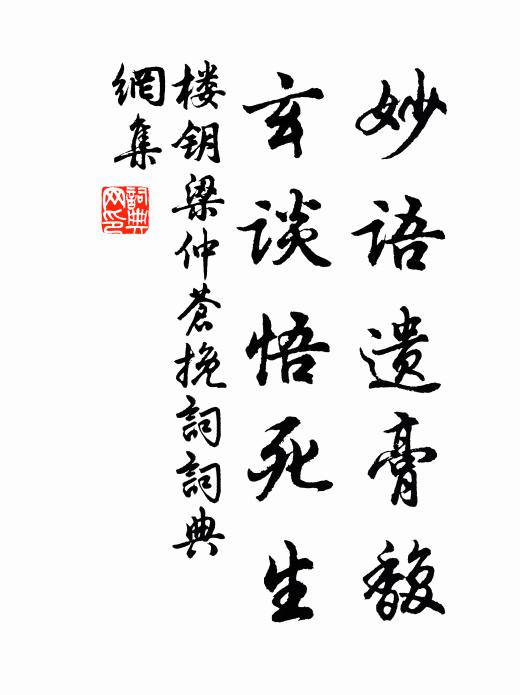 妙语遗膏馥
玄谈悟死生
楼钥梁仲蒼挽詞詞典
網集
詞典
网印